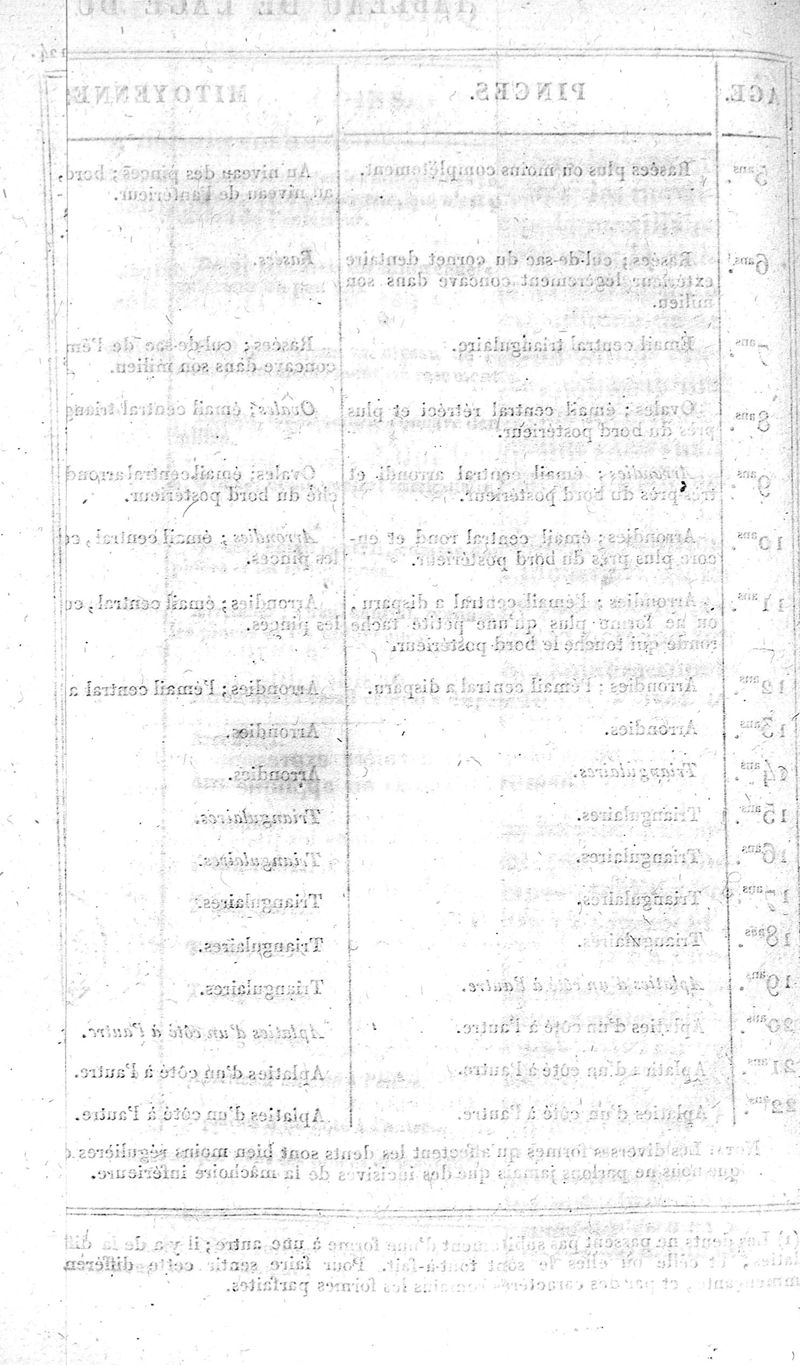 TABLEAU DE L'AGE DU
124.
AGE. PINCES. MITOYENNES
5 ans. Rasées plus ou moins complètement. Au niveau des pinces; bord
au niveau de l'antérieur.
6 ans. Rasées; cul-de-sac du cornet dentaire Rasées.
extérieur légèrement concave dans son
milieu.
7 ans. Émail central triangulaire. Rasées; cul-de-sac de l'ém
concave dans son milieu.
8 ans. Ovales; émail central rétréci et plus Ovales; émail central triang
près du bord postérieur.
9 ans. Arrondies; émail central arrondi et Ovales; émail central arrond
très-près du bord postérieur. ché du bord postérieur.
10 ans. Arrondies; émail central rond et en- Arrondies; émail central, co
core plus près du bord postérieur. les pinces.
11 ans. Arrondies; l'émail central a disparu, Arrondies; émail central, co
ou ne forme plus qu'une petite tache les pinces.
ronde qui touche le bord postérieur.
12 ans. Arrondies; l'émail central a disparu. Arrondies; l'émail central a
13 ans. Arrondies. Arrondies.
14 ans. Triangulaires. Arrondies.
15 ans. Triangulaires. Triangulaires.
16 ans. Triangulaires. Triangulaires.
17 ans. Triangulaires. Triangulaires.
18 ans. Triangulaires. Triangulaires.
19 ans. Aplaties d'un côté à l'autre. Triangulaires.
20 ans. Aplaties d'un côté à l'autre. Aplaties d'un côté à l'autre.
21 ans. Aplaties d'un côté à l'autre. Aplaties d'un côté à l'autre.
22 ans. Aplaties d'un côté à l'autre. Aplaties d'un côté à l'autre.
Nota: Les diverses formes qu'affectent les dents sont bien moins régulières
que nous ne parlons jamais que des incisives de la mâchoire inférieure.
(1) Les dents ne passent pas subitement d'une forme à une autre; il y a de la diff
laties, et celle où elles le sont tout-à-fait. Pour faire sentir cette différen
et par des caractères les formes parfaites.